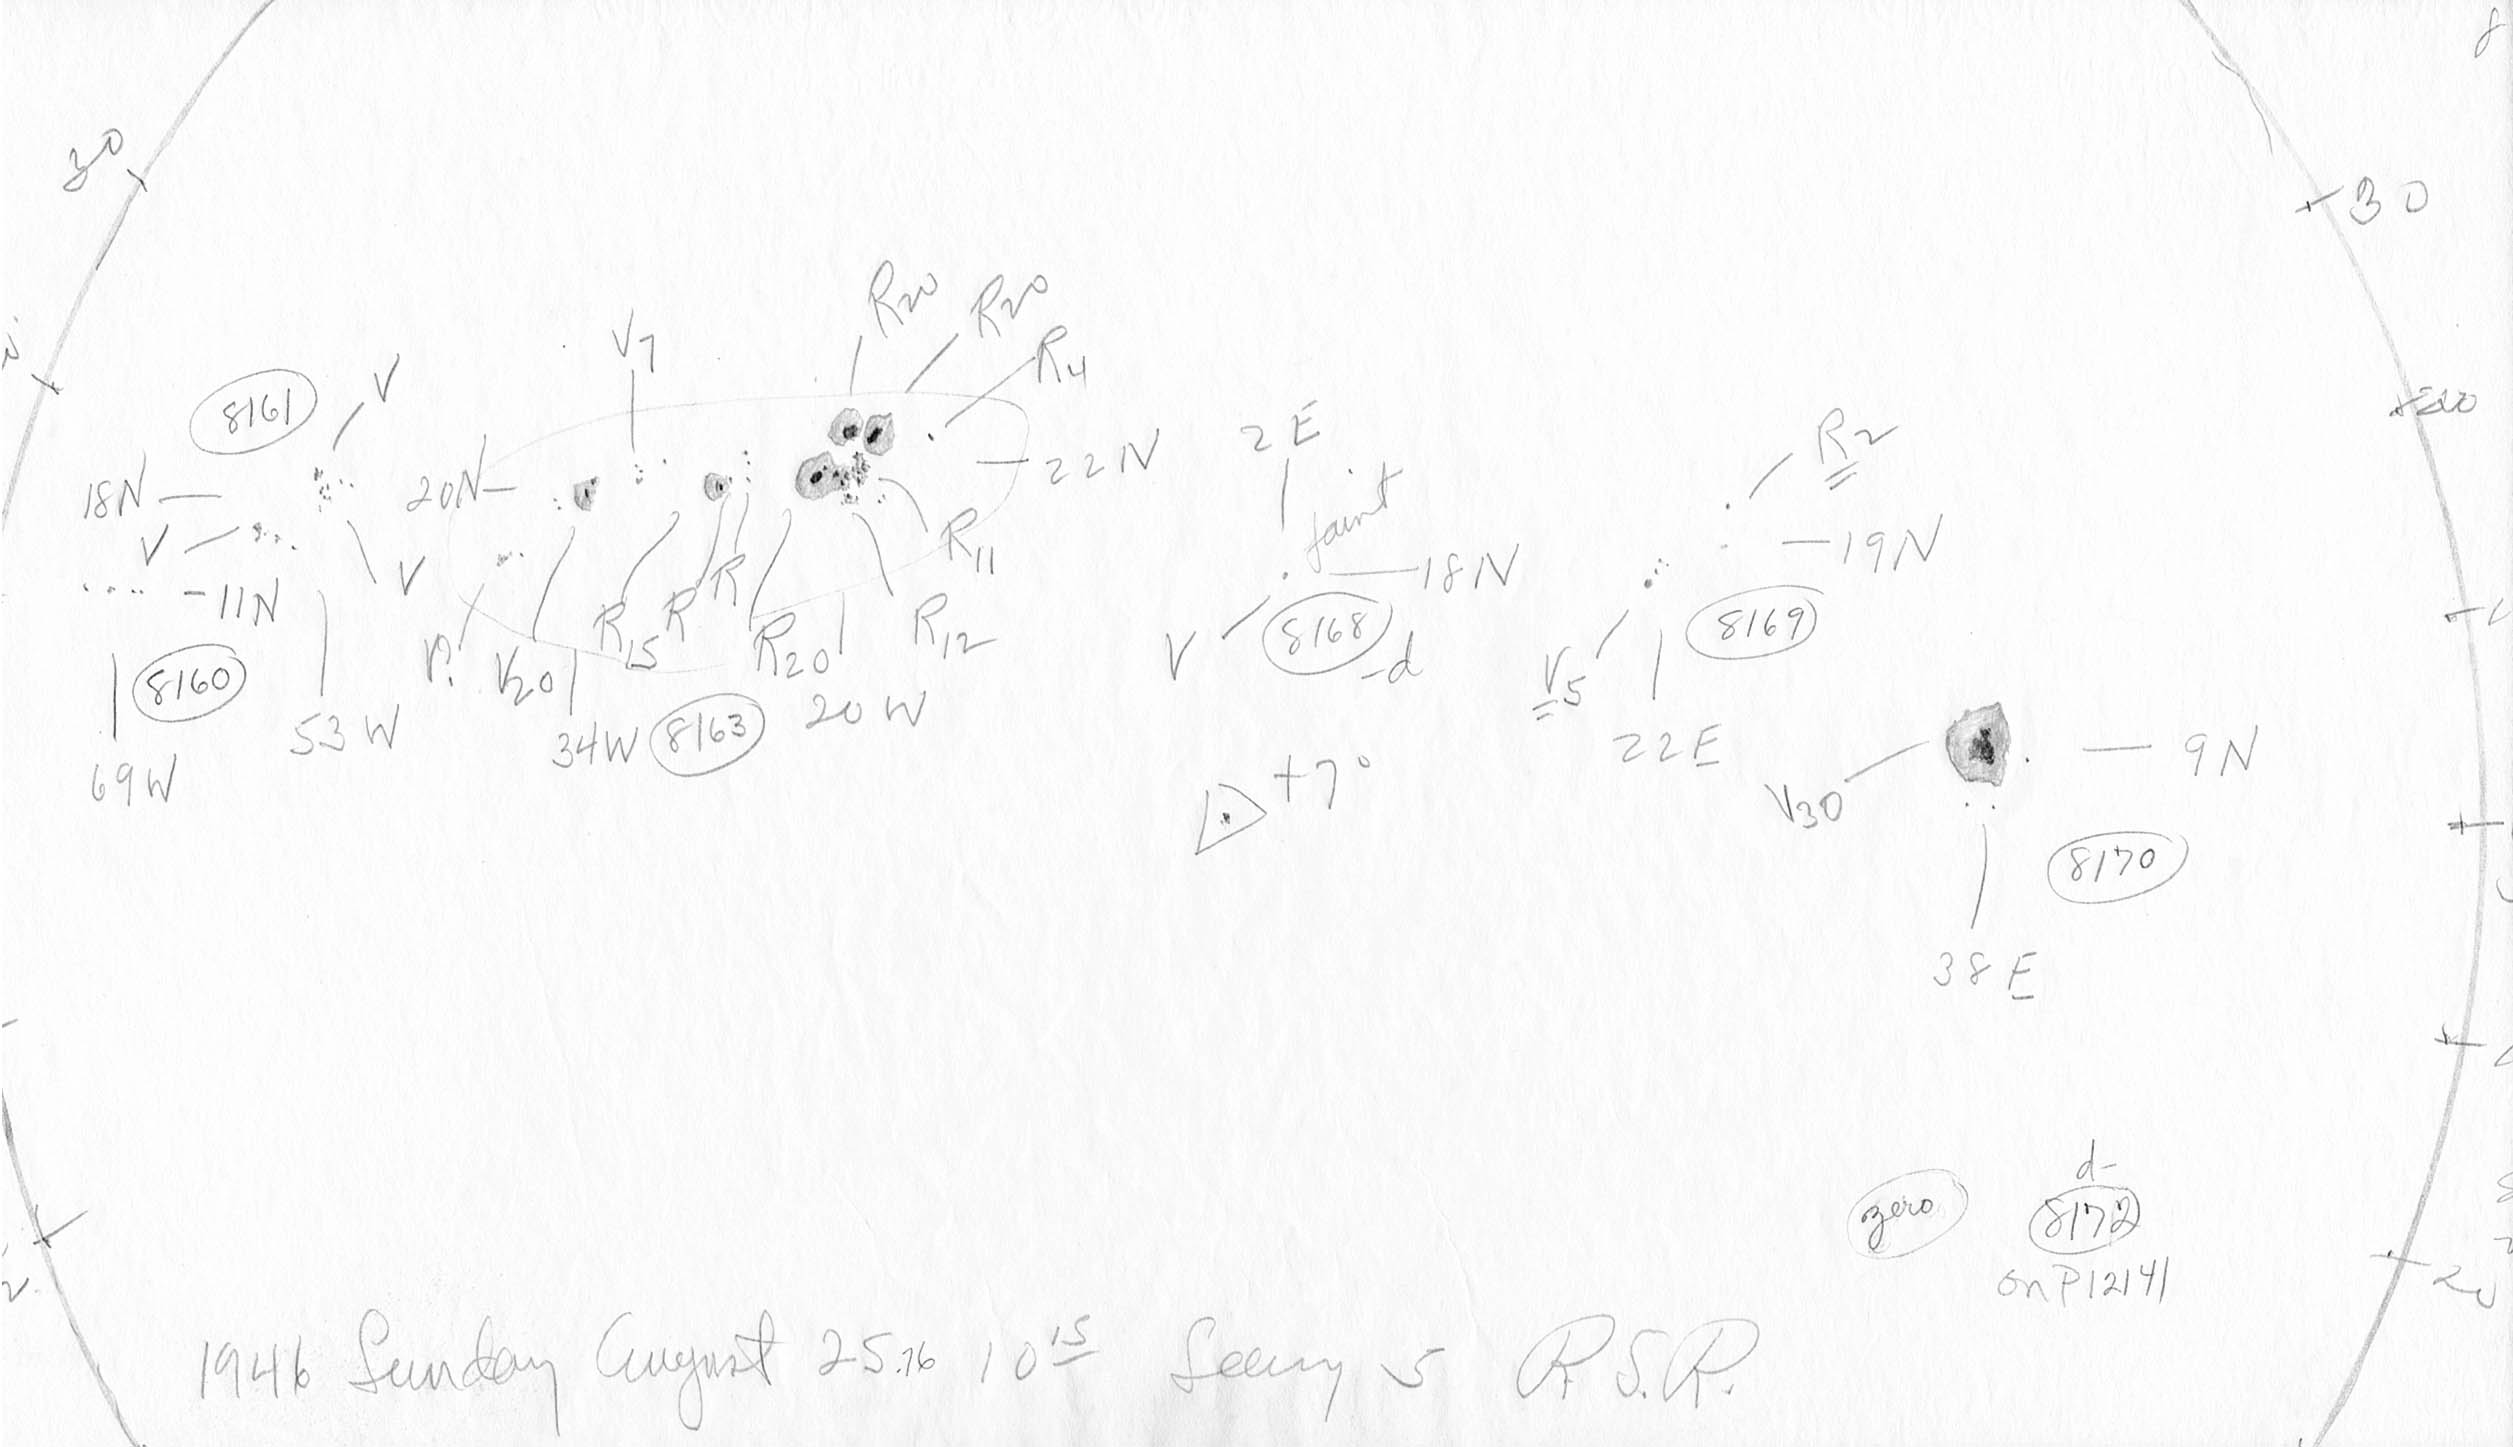 8
30
30
R20
R20
V7
R4
V
8161
20
2E
R2
22N
18N
20N
faint
V
19N
R11
18N
-11N
V
R
R15
R
R20
R12
V
8168
-d
8169
8160
V?
V20
V5
53W
34W
8163
20W
22E
9N
69W
+7°
V30
8170
38E
d-
zero
8172
on P12141
20
1946 Sunday August 25.76 10 15 Seeing 5 R.S.R.